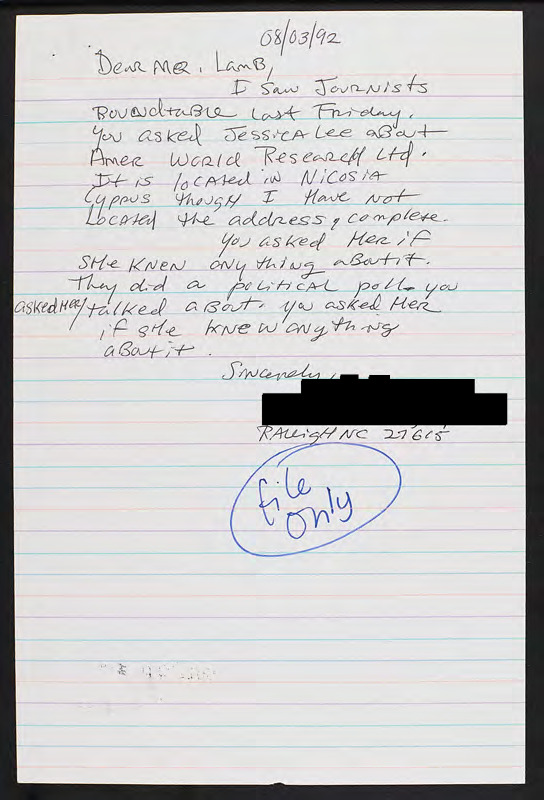 08/03/92
Dear Mr. Lamb,
I saw Journists
Roundtable last Friday.
You asked Jessica Lee about
Amer World Research Ltd.
It is located in Nicosia
Cyprus though I Have not
Located the address, complete.
You asked Her if
SHe knew anything about it.
They did a political poll you
asked Her/talked about. You asked Her
if SHe knew anything
about it.
Sincerely,
Raleigh NC 27615
file
only